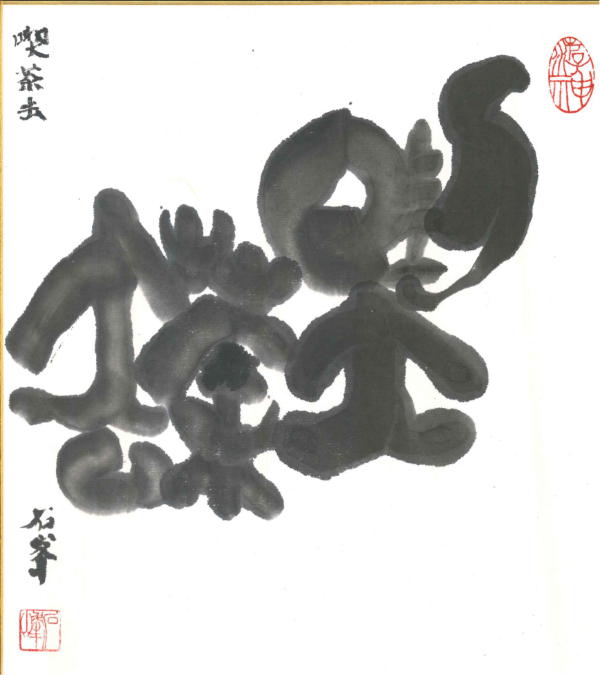 喫茶去
喫茶去
石峯
石峰